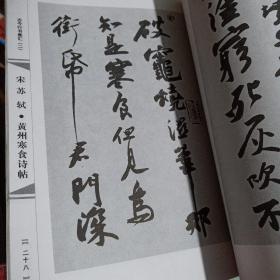 宋 苏 轼 • 黄州寒食诗帖
【二十八】
破竈燒濕葦 那
知是寒食但見烏
銜帋 君門深
塗窮 死灰吹不